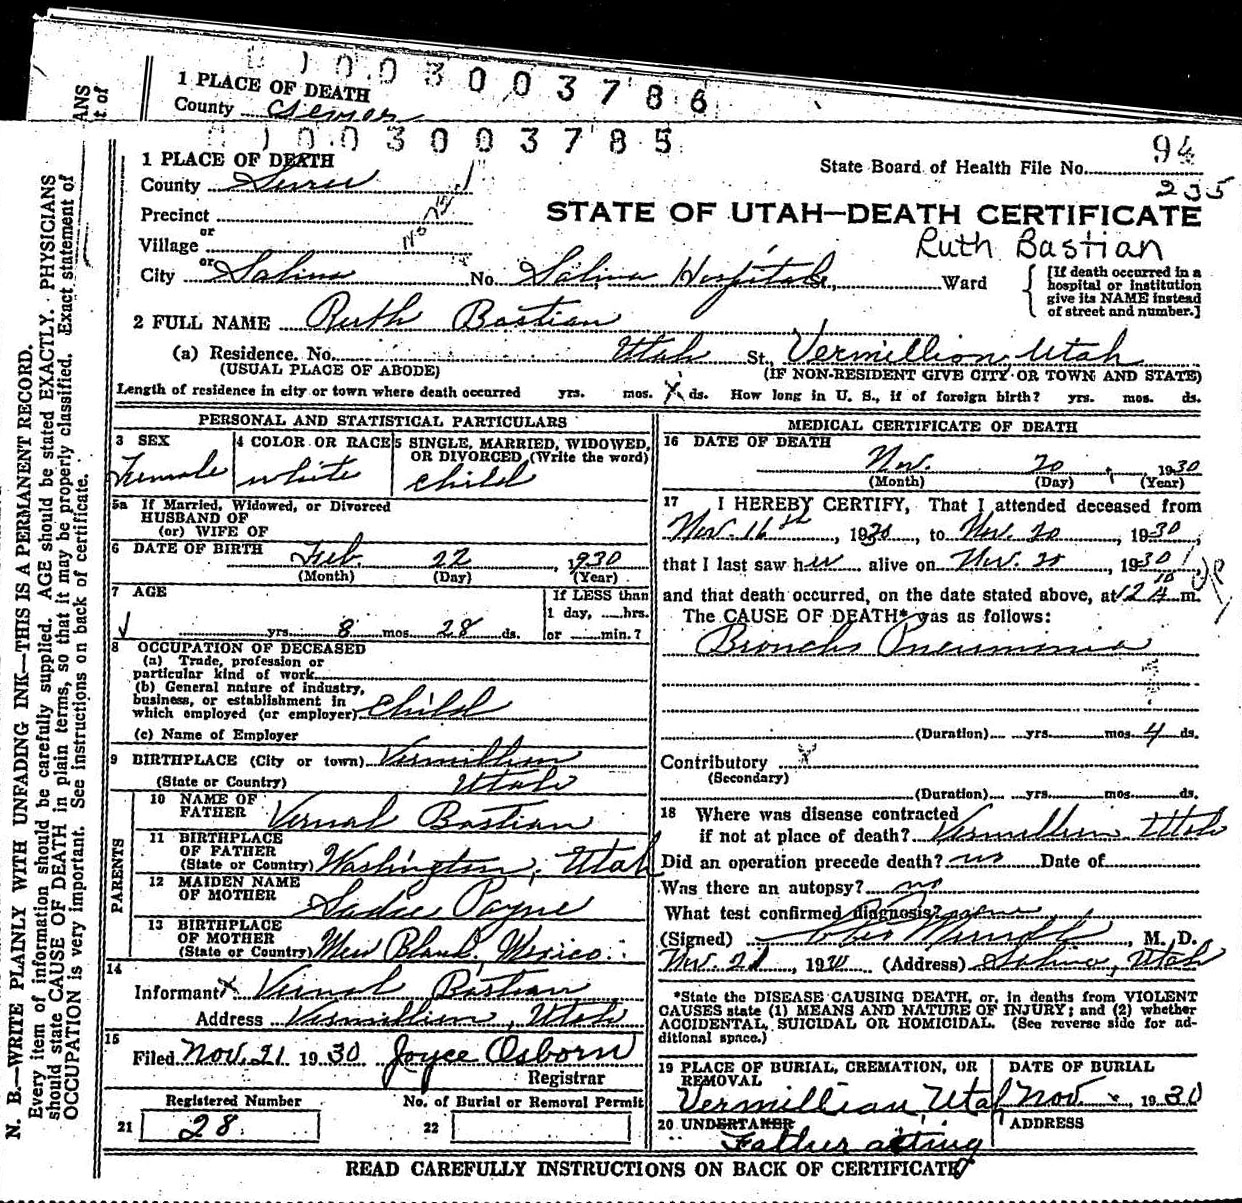 1 PLACE OF DEATH
0 1 0 0 3 0 0 3 7 8 6
County Sevier
0 1 0 0 3 0 0 3 7 8 5
94
1 PLACE OF DEATH
State Board of Health File No.
235
County Sevier
Precinct
STATE OF UTAH—DEATH CERTIFICATE
or
Village
Ruth Bastian
or
City Salina No. Salina Hospital St., Ward
[If death occurred in a hospital or institution give its NAME instead of street and number.]
2 FULL NAME Ruth Bastian
(a) Residence. No. Utah St. Vermillion, Utah
(USUAL PLACE OF ABODE) (IF NON-RESIDENT GIVE CITY OR TOWN AND STATE)
Length of residence in city or town where death occurred yrs. mos. X ds. How long in U. S., if of foreign birth? yrs. mos. ds.
PERSONAL AND STATISTICAL PARTICULARS
3 SEX
Female
4 COLOR OR RACE
white
5 SINGLE, MARRIED, WIDOWED, OR DIVORCED (Write the word)
child
5a If Married, Widowed, or Divorced
HUSBAND OF
(or) WIFE OF
6 DATE OF BIRTH Feb. 22, 1930
(Month) (Day) (Year)
7 AGE
yrs. 8 mos. 28 ds.
If LESS than
1 day, hrs.
or min.?
8 OCCUPATION OF DECEASED
(a) Trade, profession or
particular kind of work
(b) General nature of industry,
business, or establishment in
which employed (or employer) child
(c) Name of Employer
9 BIRTHPLACE (City or town) Vermillion
(State or Country) Utah
PARENTS
10 NAME OF
FATHER Vernal Bastian
11 BIRTHPLACE
OF FATHER
(State or Country) Washington, Utah
12 MAIDEN NAME
OF MOTHER Sadie Payne
13 BIRTHPLACE
OF MOTHER
(State or Country) Mexico
14
Informant X Vernal Bastian
Address Vermillion, Utah
15
Filed Nov. 21 1930 Joyce Osborn
Registrar
Registered Number No. of Burial or Removal Permit
21 28 22
MEDICAL CERTIFICATE OF DEATH
16 DATE OF DEATH
Nov. 20, 1930
(Month) (Day) (Year)
17 I HEREBY CERTIFY, That I attended deceased from
Nov. 16th, 1930, to Nov. 20, 1930,
that I last saw her alive on Nov. 20, 1930
and that death occurred, on the date stated above, at 12 10 A m.
The CAUSE OF DEATH* was as follows:
Broncho Pneumonia
(Duration) yrs. mos. 4 ds.
Contributory X
(Secondary)
(Duration) yrs. mos. ds.
18 Where was disease contracted
if not at place of death? Vermillion Utah
Did an operation precede death? no Date of
Was there an autopsy? no
What test confirmed diagnosis?
(Signed) M. D.
Nov. 21, 1930 (Address) Salina, Utah
*State the DISEASE CAUSING DEATH, or, in deaths from VIOLENT
CAUSES state (1) MEANS AND NATURE OF INJURY; and (2) whether
ACCIDENTAL, SUICIDAL OR HOMICIDAL. (See reverse side for ad-
ditional space.)
19 PLACE OF BURIAL, CREMATION, OR
REMOVAL
Vermillian Utah
DATE OF BURIAL
Nov. 1930
20 UNDERTAKER
Father acting
ADDRESS
READ CAREFULLY INSTRUCTIONS ON BACK OF CERTIFICATE
N. B.—WRITE PLAINLY WITH UNFADING INK—THIS IS A PERMANENT RECORD.
Every item of information should be carefully supplied. AGE should be stated EXACTLY. PHYSICIANS
should state CAUSE OF DEATH in plain terms, so that it may be properly classified. Exact statement of
OCCUPATION is very important. See instructions on back of certificate.